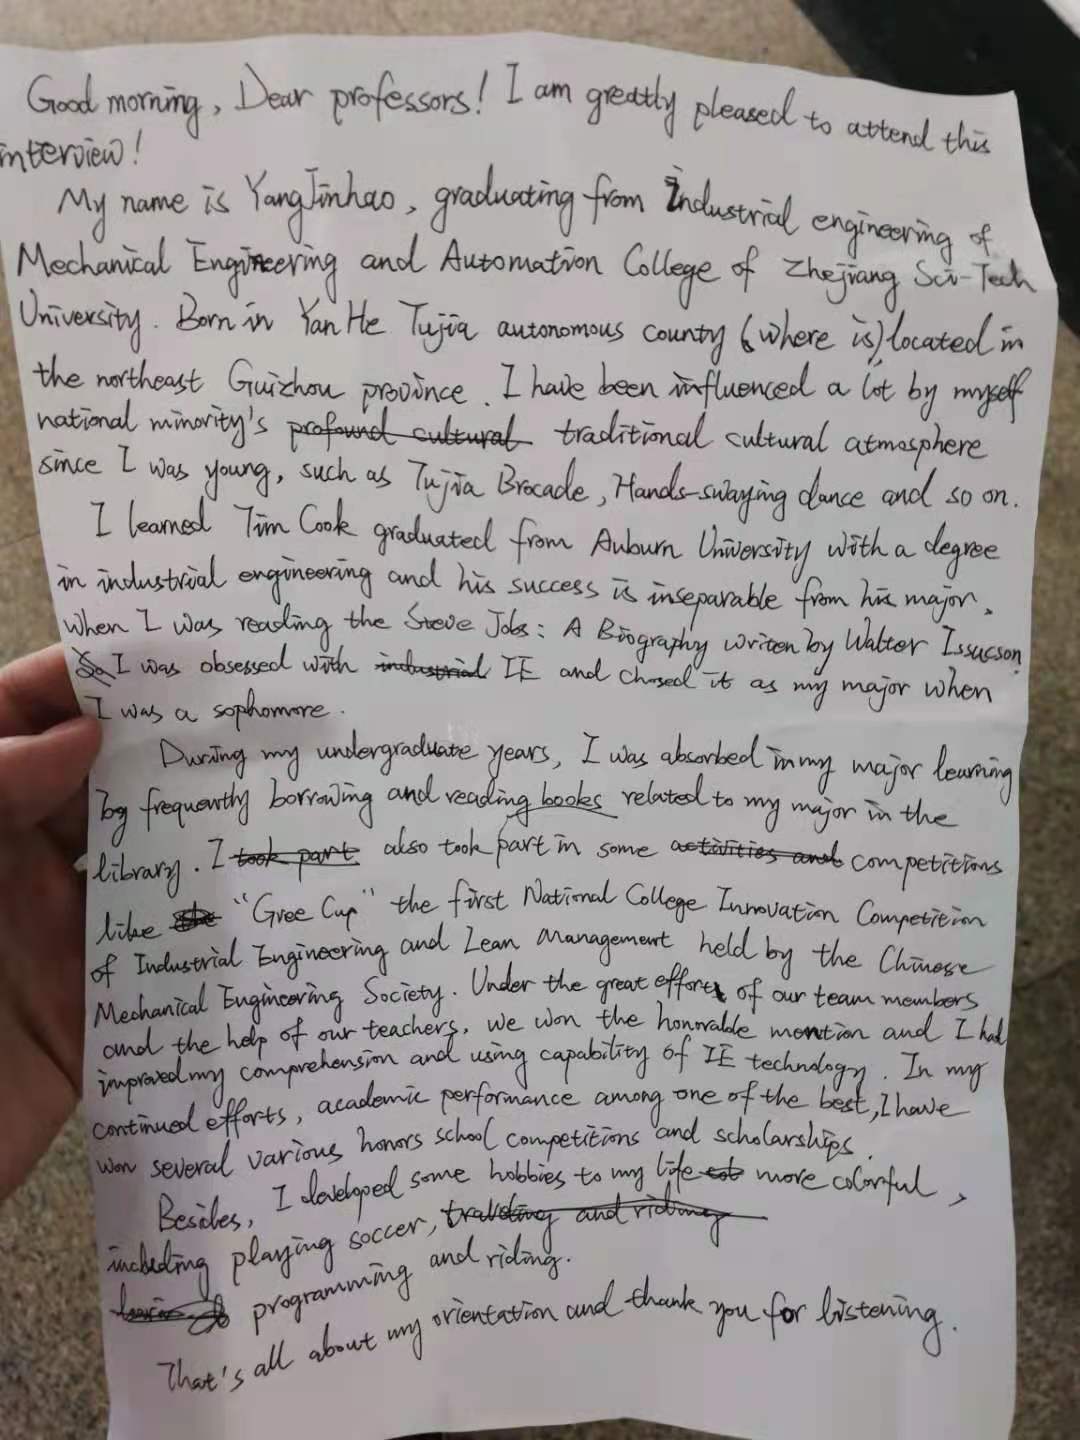 Good morning, Dear professors! I am greatly pleased to attend this
interview!
My name is YangJinhao, graduating from Industrial engineering of
Mechanical Engineering and Automation College of Zhejiang Sci-Tech
University. Born in YanHe Tujia autonomous county (where is) located in
the northeast Guizhou province. I have been influenced a lot by myself
national minority's profound cultural traditional cultural atmosphere
since I was young, such as Tujia Brocade, Hands-swaying dance and so on.
I learned Tim Cook graduated from Auburn University with a degree
in industrial engineering and his success is inseparable from his major.
when I was reading the Steve Jobs: A Biography writen by Walter Issucson.
So I was obsessed with industrial IE and chosed it as my major when
I was a sophomore.
During my undergraduate years, I was absorbed in my major learning
by frequently borrowing and reading books related to my major in the
library. I took part also took part in some activities and competitions
like the "Gree Cup" the first National College Innovation Competition
of Industrial Engineering and Lean Management held by the Chinese
Mechanical Engineering Society. Under the great efforts of our team members
and the help of our teachers, we won the honorable mention and I had
improved my comprehension and using capability of IE technology. In my
continued efforts, academic performance among one of the best, I have
won several various honors school competitions and scholarships.
Besides, I developed some hobbies to my life more colorful,
including playing soccer, traveling and riding
programming and riding.
That's all about my orientation and thank you for listening.